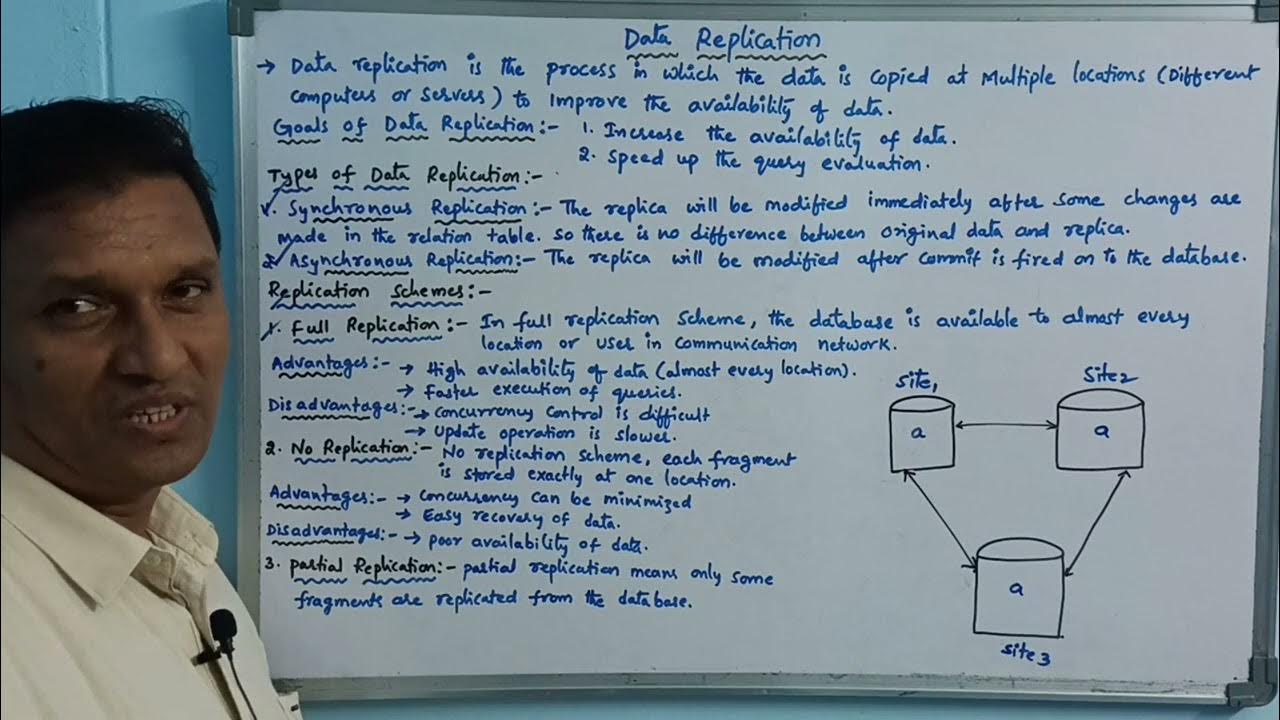 Data Replication
→ Data replication is the process in which the data is copied at Multiple locations (Different
computers or servers) to improve the availability of data.
Goals of Data Replication:- 1. Increase the availability of data.
2. Speed up the query evaluation.
Types of Data Replication:-
1. Synchronous Replication:- The replica will be modified immediately after some changes are
made in the relation table. so there is no difference between original data and replica.
2. Asynchronous Replication:- The replica will be modified after commit is fired on to the database.
Replication Schemes:-
1. Full Replication:- In full replication scheme, the database is available to almost every
location or user in communication network.
Advantages:- → High availability of data (almost every location).
→ Faster execution of queries.
Disadvantages:- → concurrency control is difficult
→ Update operation is slower.
2. No Replication:- No replication scheme, each fragment
is stored exactly at one location.
Advantages:- → concurrency can be minimized
→ Easy recovery of data.
Disadvantages:- → poor availability of data.
3. partial Replication:- partial replication means only some
fragments are replicated from the database.
site1
site2
a
a
a
site3